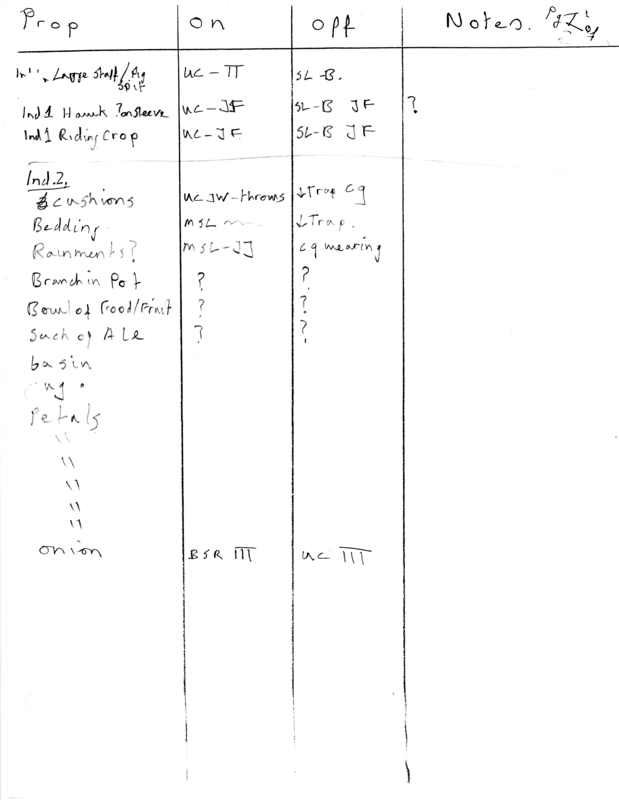 Prop on off Notes. Pg
Large Staff/ UC-TT SL-B.
Ind 1 Hawk ? on sleeve UC-JF SL-B JF ?
Ind 1 Riding Crop UC-JF SL-B JF
Ind.2.
cushions UC JW-throws ↓Trap cq
Bedding. MSL ↓Trap.
Rainments? MSL-JJ cq wearing
Branch in Pot ? ?
Bowl of Food/Fruit ? ?
Sach of Ale ? ?
basin
Petals
"
"
"
"
"
onion BSR III UC III